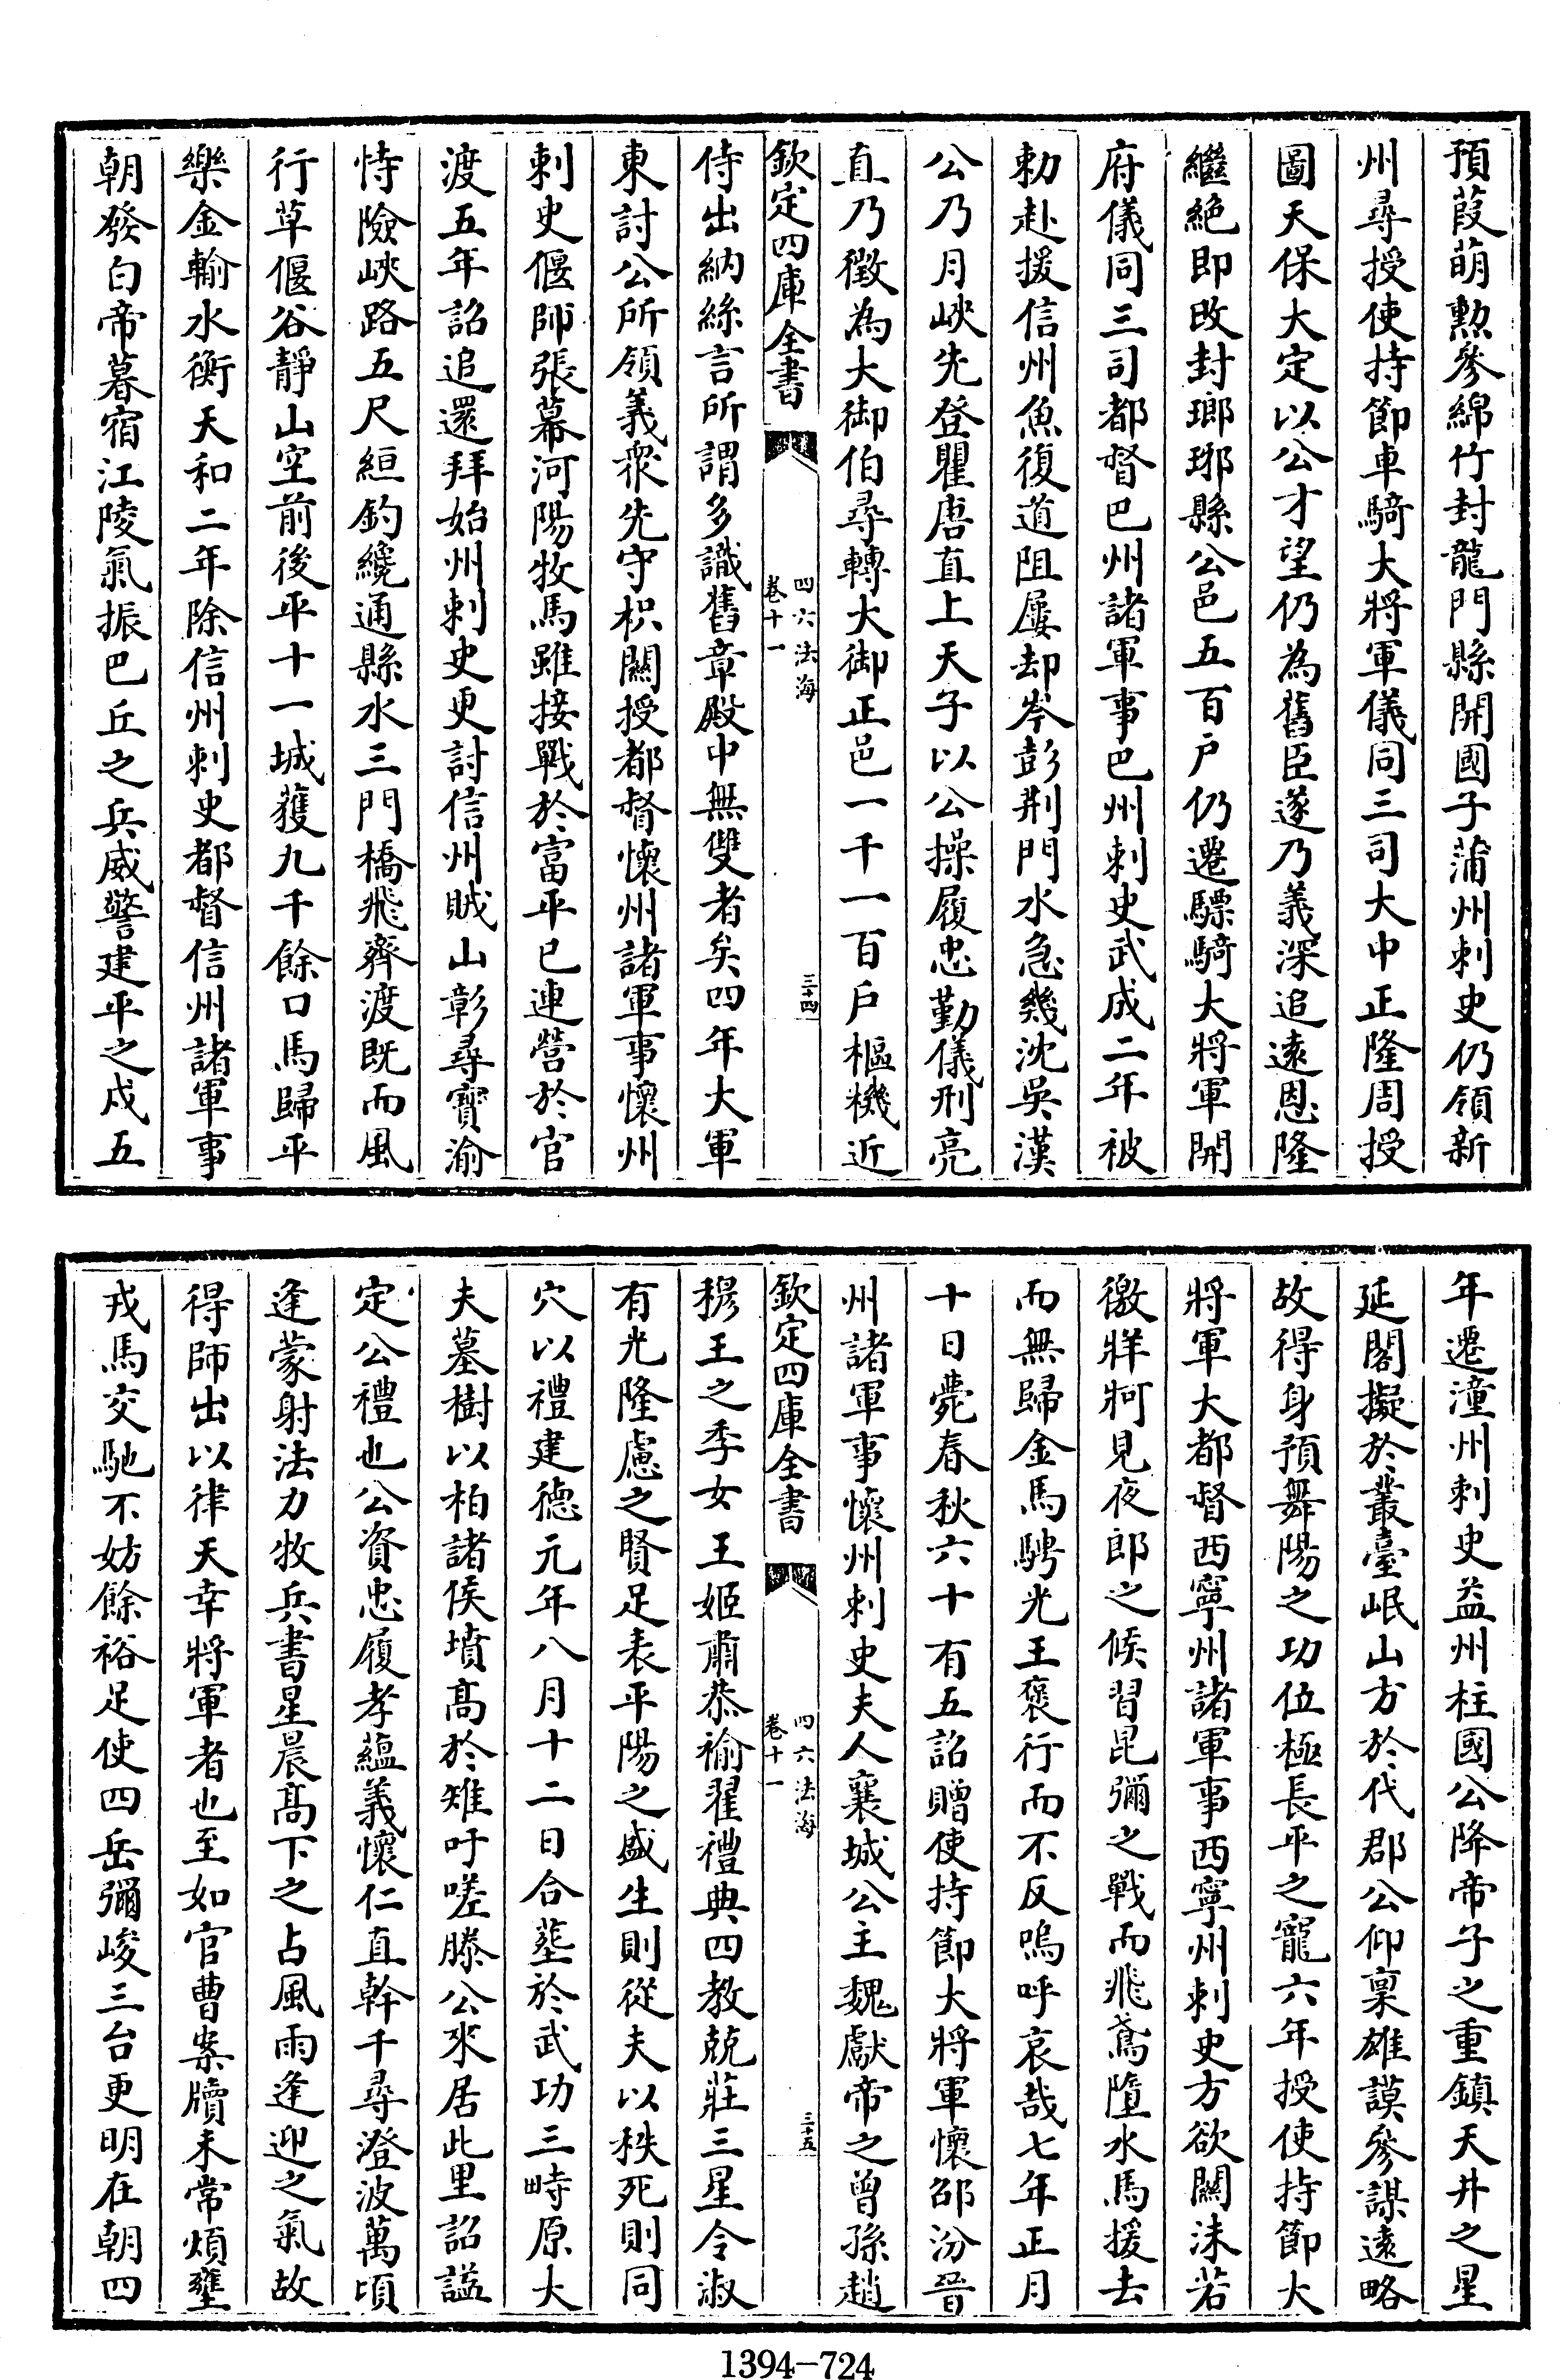 預葭萌勲參綿竹封龍門縣開國子蒲州刺史仍領新
州尋授使持節車騎大將軍儀同三司大中正隆周授
圖天保大定以公才望仍為舊臣遂乃義深追遠恩隆
繼絶即改封瑯琊縣公邑五百户仍遷驃騎大將軍開
府儀同三司都督巴州諸軍事巴州刺史武成二年被
勅赴援信州魚復道阻屢却岑彭荆門水急幾沈吳漢
公乃月峽先登瞿唐直上天子以公操履忠勤儀刑亮
直乃徵為大御伯尋轉大御正邑一千一百戶樞機近
欽定四庫全書
四六法海
卷十一
三十四
侍出納絲言所謂多識舊章殿中無雙者矣四年大軍
東討公所領義衆先守枳關授都督懷州諸軍事懷州
刺史偃師張幕河陽牧馬雖接戰於富平已連營於官
渡五年詔追還拜始州刺史更討信州賊山彰尋寶渝
恃險峽路五尺絙釣纔通縣水三門橋飛齊渡既而風
行草偃谷靜山空前後平十一城獲九千餘口馬歸平
樂金輸水衡天和二年除信州刺史都督信州諸軍事
朝發白帝暮宿江陵氣振巴丘之兵威警建平之戍五
年遷潼州刺史益州柱國公降帝子之重鎮天井之星
延閣擬於叢臺岷山方於代郡公仰稟雄謨參謀遠略
故得身預舞陽之功位極長平之寵六年授使持節大
將軍大都督西寧州諸軍事西寧州刺史方欲關沬若
徼牂牁見夜郎之候習昆彌之戰而飛鳶墮水馬援去
而無歸金馬騁光王褒行而不反嗚呼哀哉七年正月
十日薨春秋六十有五詔贈使持節大將軍懷邵汾晉
州諸軍事懷州刺史夫人襄城公主魏獻帝之曾孫趙
欽定四庫全書
四六法海
卷十一
三十五
穆王之季女王姬肅恭褕翟禮典四教兢莊三星令淑
有光隆慮之賢足表平陽之盛生則從夫以秩死則同
穴以禮建德元年八月十二日合塟於武功三畤原大
夫墓樹以柏諸侯墳髙於雉吁嗟滕公來居此里詔謚
定公禮也公資忠履孝藴義懷仁直幹千尋澄波萬頃
逢蒙射法力牧兵書星晨髙下之占風雨逢迎之氣故
得師出以律天幸將軍者也至如官曹案牘未常煩壅
戎馬交馳不妨餘裕足使四岳彌峻三台更明在朝四
1394-724